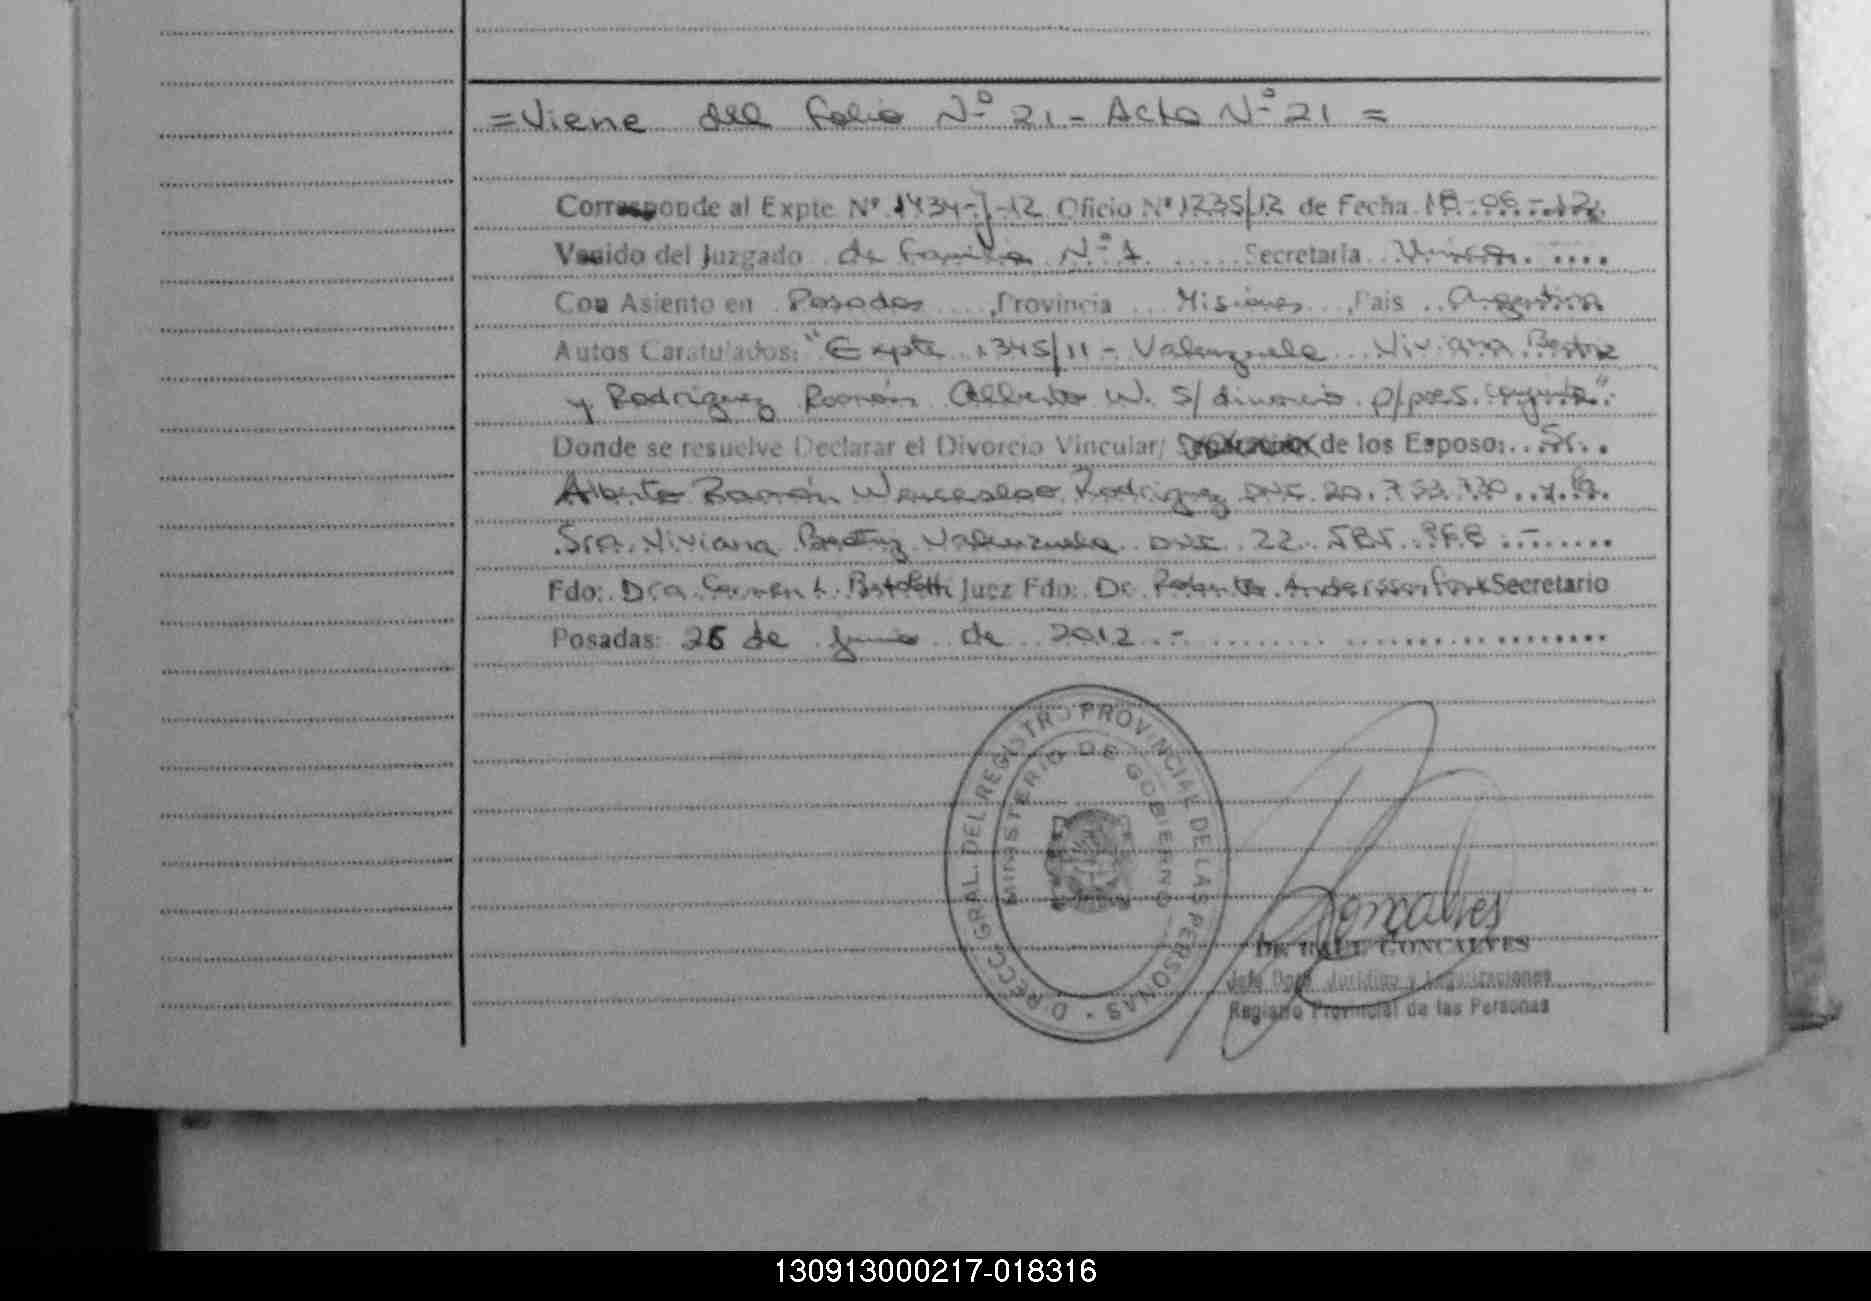 =Viene del folio Nº 21 - Acta Nº 21 =
Corresponde al Expte Nº 1434-J-12 Oficio Nº 1235/12 de Fecha 18-06-12
Venido del Juzgado de Familia Nº 1 Secretaría Única
Con Asiento en Posadas, Provincia Misiones, País Argentina
Autos Caratulados: "Expte 1345/11 - Valenzuela Viviana Beatriz
y Rodriguez Ramón Alberto W. S/ divorcio p/pres. conjunta"
Donde se resuelve Declarar el Divorcio Vincular/ de los Esposo: Sr.
Alberto Ramón Wenceslao Rodriguez DNI. 20.753.730 y la
Sra. Viviana Beatriz Valenzuela DNI 22.585. -
Fdo: Dra Carmen L. Juez Fdo: Dr. Andersson Secretario
Posadas: 26 de Junio de 2012 -
DIRECC. GRAL. DEL REGISTRO PROVINCIAL DE LAS PERSONAS
MINISTERIO DE GOBIERNO
Goncalves
Dr. RAUL GONCALVES
Jefe Dpto. Jurídico y Legalizaciones
Registro Provincial de las Personas
130913000217-018316